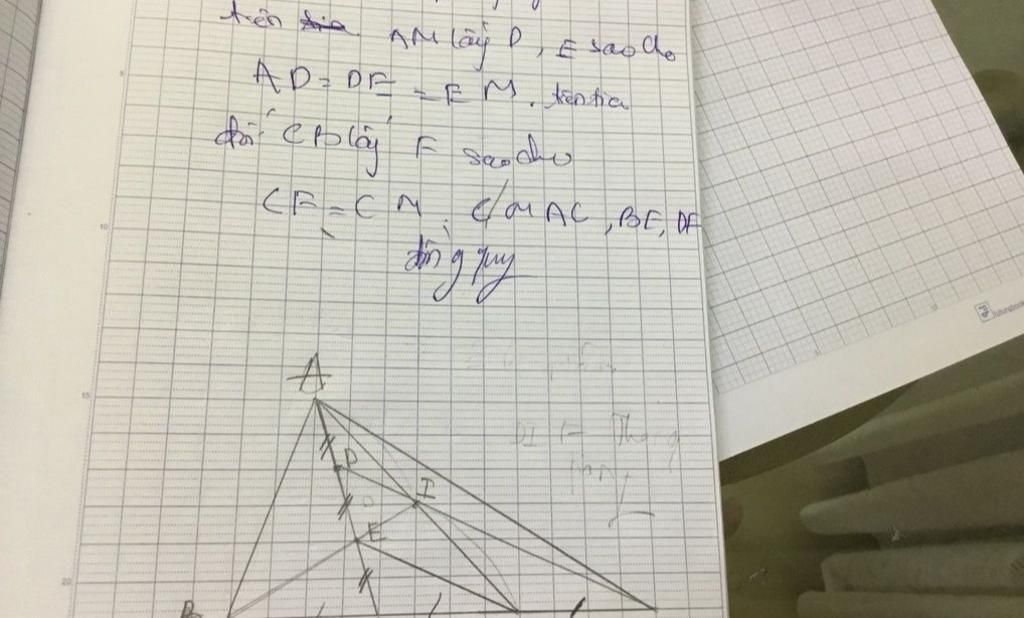 trên AM lấy D, E sao cho
AD = DE = EM. trên tia
đối CB lấy F sao cho
CF = CM. C/M AC, BE, DF
đồng quy
A
D
I
E
B
10
15
20